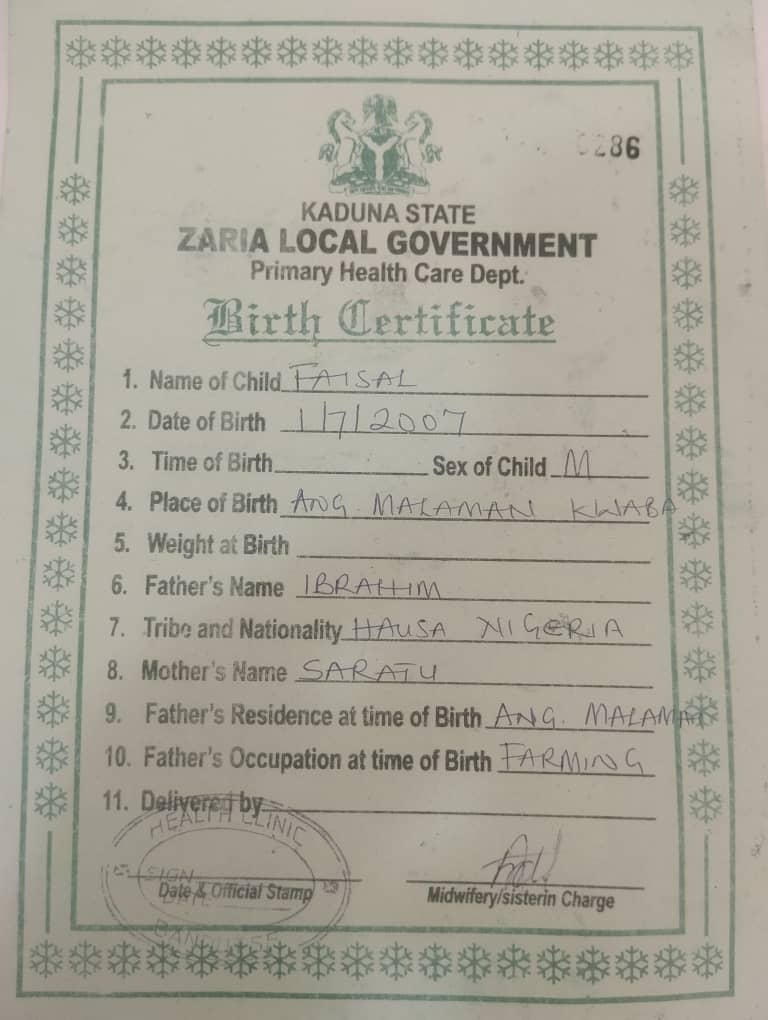 286
KADUNA STATE
ZARIA LOCAL GOVERNMENT
Primary Health Care Dept.
Birth Certificate
1. Name of Child FAISAL
2. Date of Birth 1/7/2007
3. Time of Birth Sex of Child M
4. Place of Birth ANG. MALAMAN KWABA
5. Weight at Birth
6. Father's Name IBRAHIM
7. Tribe and Nationality HAUSA NIGERIA
8. Mother's Name SARATU
9. Father's Residence at time of Birth ANG. MALAMA
10. Father's Occupation at time of Birth FARMING
11. Delivered by
HEALTH CLINIC
SIGN
DATE
Date & Official Stamp
Midwifery/sisterin Charge